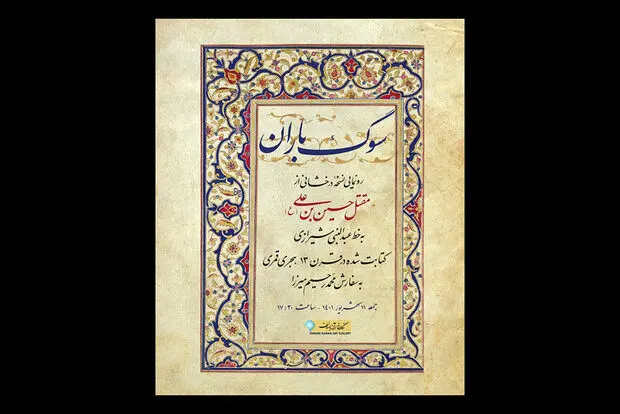 سوگ باران
رونمایی نسخه درخشانی از
مقتل حسین بن علی (ع)
به خط عبدالنبی شیرازی
کتابت شده در قرن ۱۳ هجری قمری
به سفارش محمد رحیم میرزا
جمعه ۱۱ شهریور ۱۴۰۱ - ساعت ۱۷:۳۰